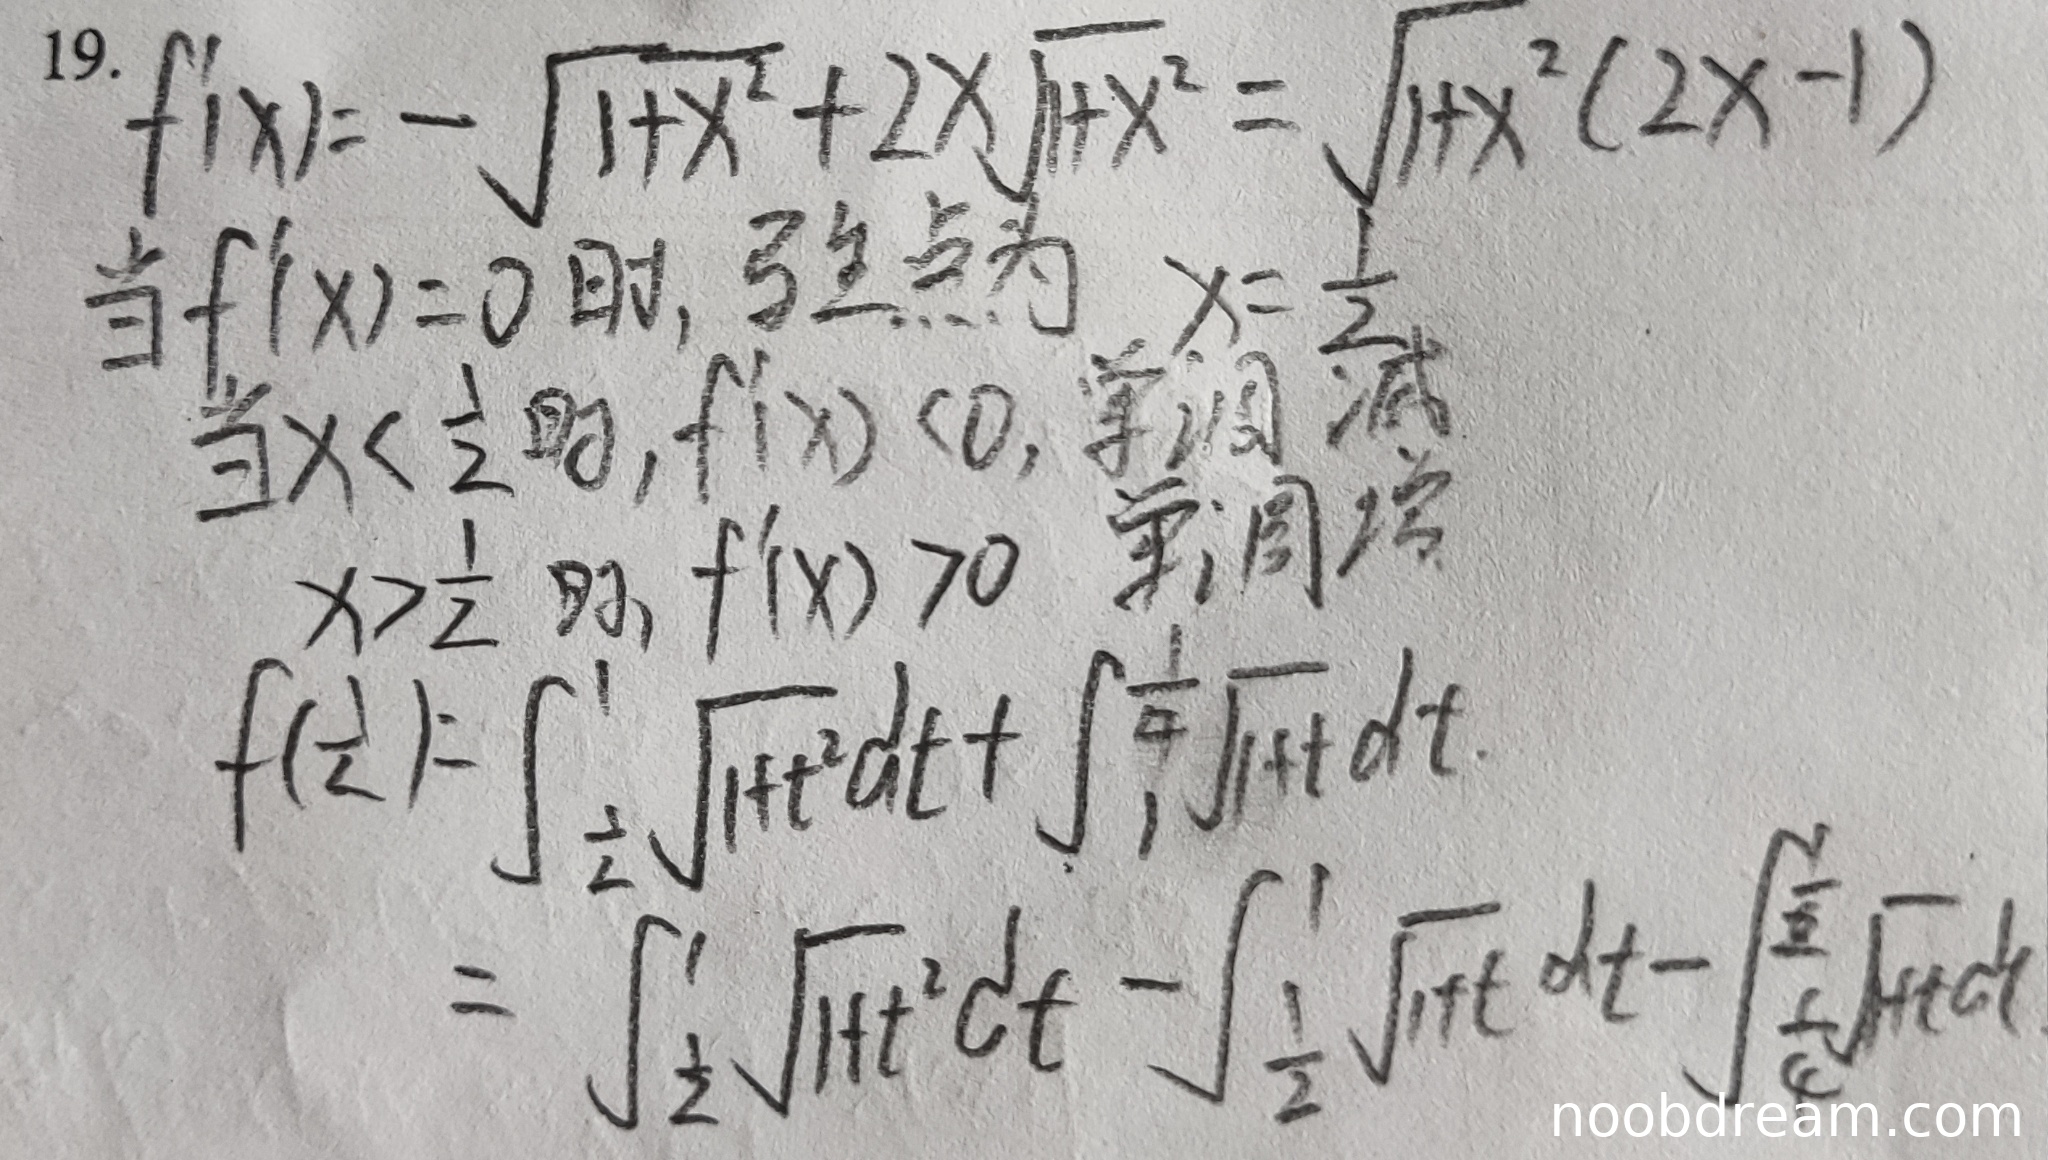 19. f'(x)= -√(1+x²) + 2x√(1+x²) = √(1+x²) (2x-1)
当f'(x)=0时, 驻点为 x=1/2
当x<1/2时, f'(x)<0, 单调减
x>1/2时, f'(x)>0 单调增
f(1/2)= ∫_{1/2}^{1} √(1+t²) dt + ∫_{1}^{1/4} √(1+t) dt.
= ∫_{1/2}^{1} √(1+t²) dt - ∫_{1/2}^{1} √(1+t) dt - ∫_{1/4}^{1/2} √(1+t) dt
noobdream.com